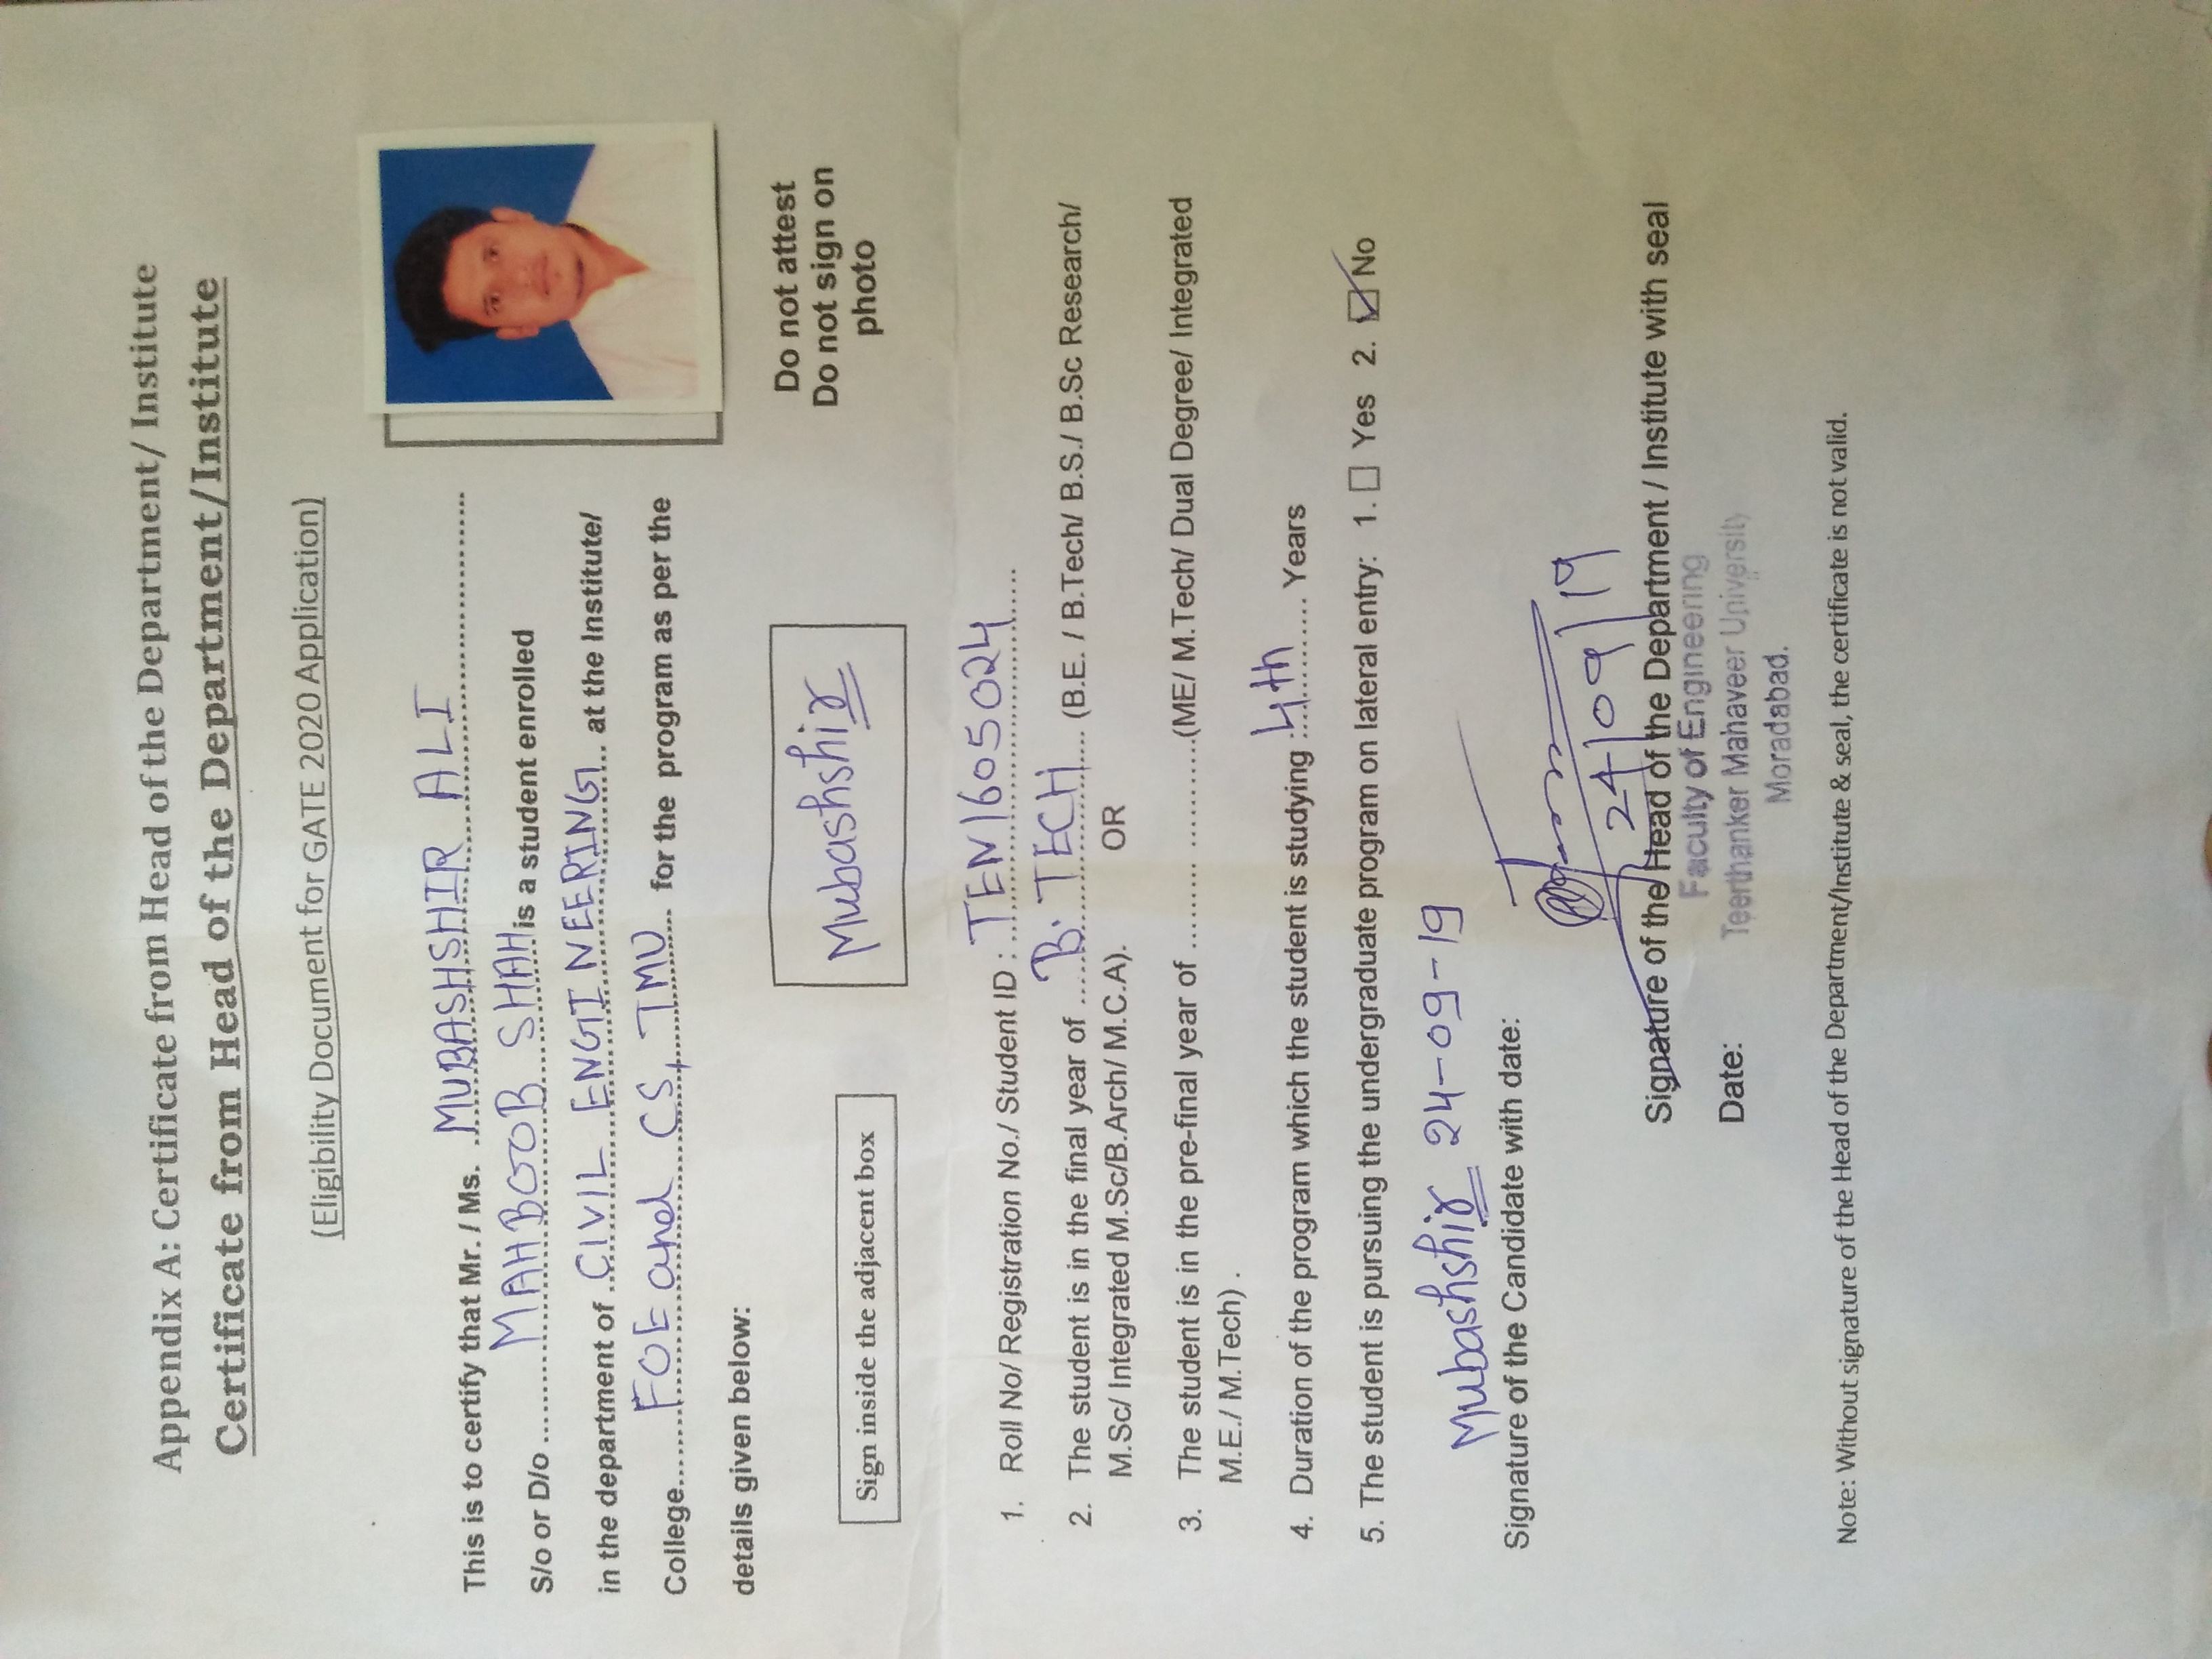 Appendix A: Certificate from Head of the Department/ Institute
Certificate from Head of the Department/Institute
(Eligibility Document for GATE 2020 Application)
This is to certify that Mr. / Ms. MUBASHSHIR ALI
S/o or D/o MAHBOOB SHAH is a student enrolled
in the department of CIVIL ENGINEERING at the Institute/
College FOE and CS, TMU for the program as per the
details given below:
Do not attest
Do not sign on
photo
Sign inside the adjacent box
Mubashshir
1. Roll No/ Registration No./ Student ID : TEN1605024
2. The student is in the final year of B. TECH (B.E. / B.Tech/ B.S./ B.Sc Research/
M.Sc/ Integrated M.Sc/B.Arch/ M.C.A). OR
3. The student is in the pre-final year of ......... ............(ME/ M.Tech/ Dual Degree/ Integrated
M.E./ M.Tech) .
4. Duration of the program which the student is studying : 4th Years
5. The student is pursuing the undergraduate program on lateral entry: 1. ☐ Yes 2. ☑ No
Mubashshir 24-09-19
Signature of the Candidate with date:
24/09/19
Signature of the Head of the Department / Institute with seal
Faculty of Engineering
Date: Teerthanker Mahaveer University
Moradabad.
Note: Without signature of the Head of the Department/Institute & seal, the certificate is not valid.